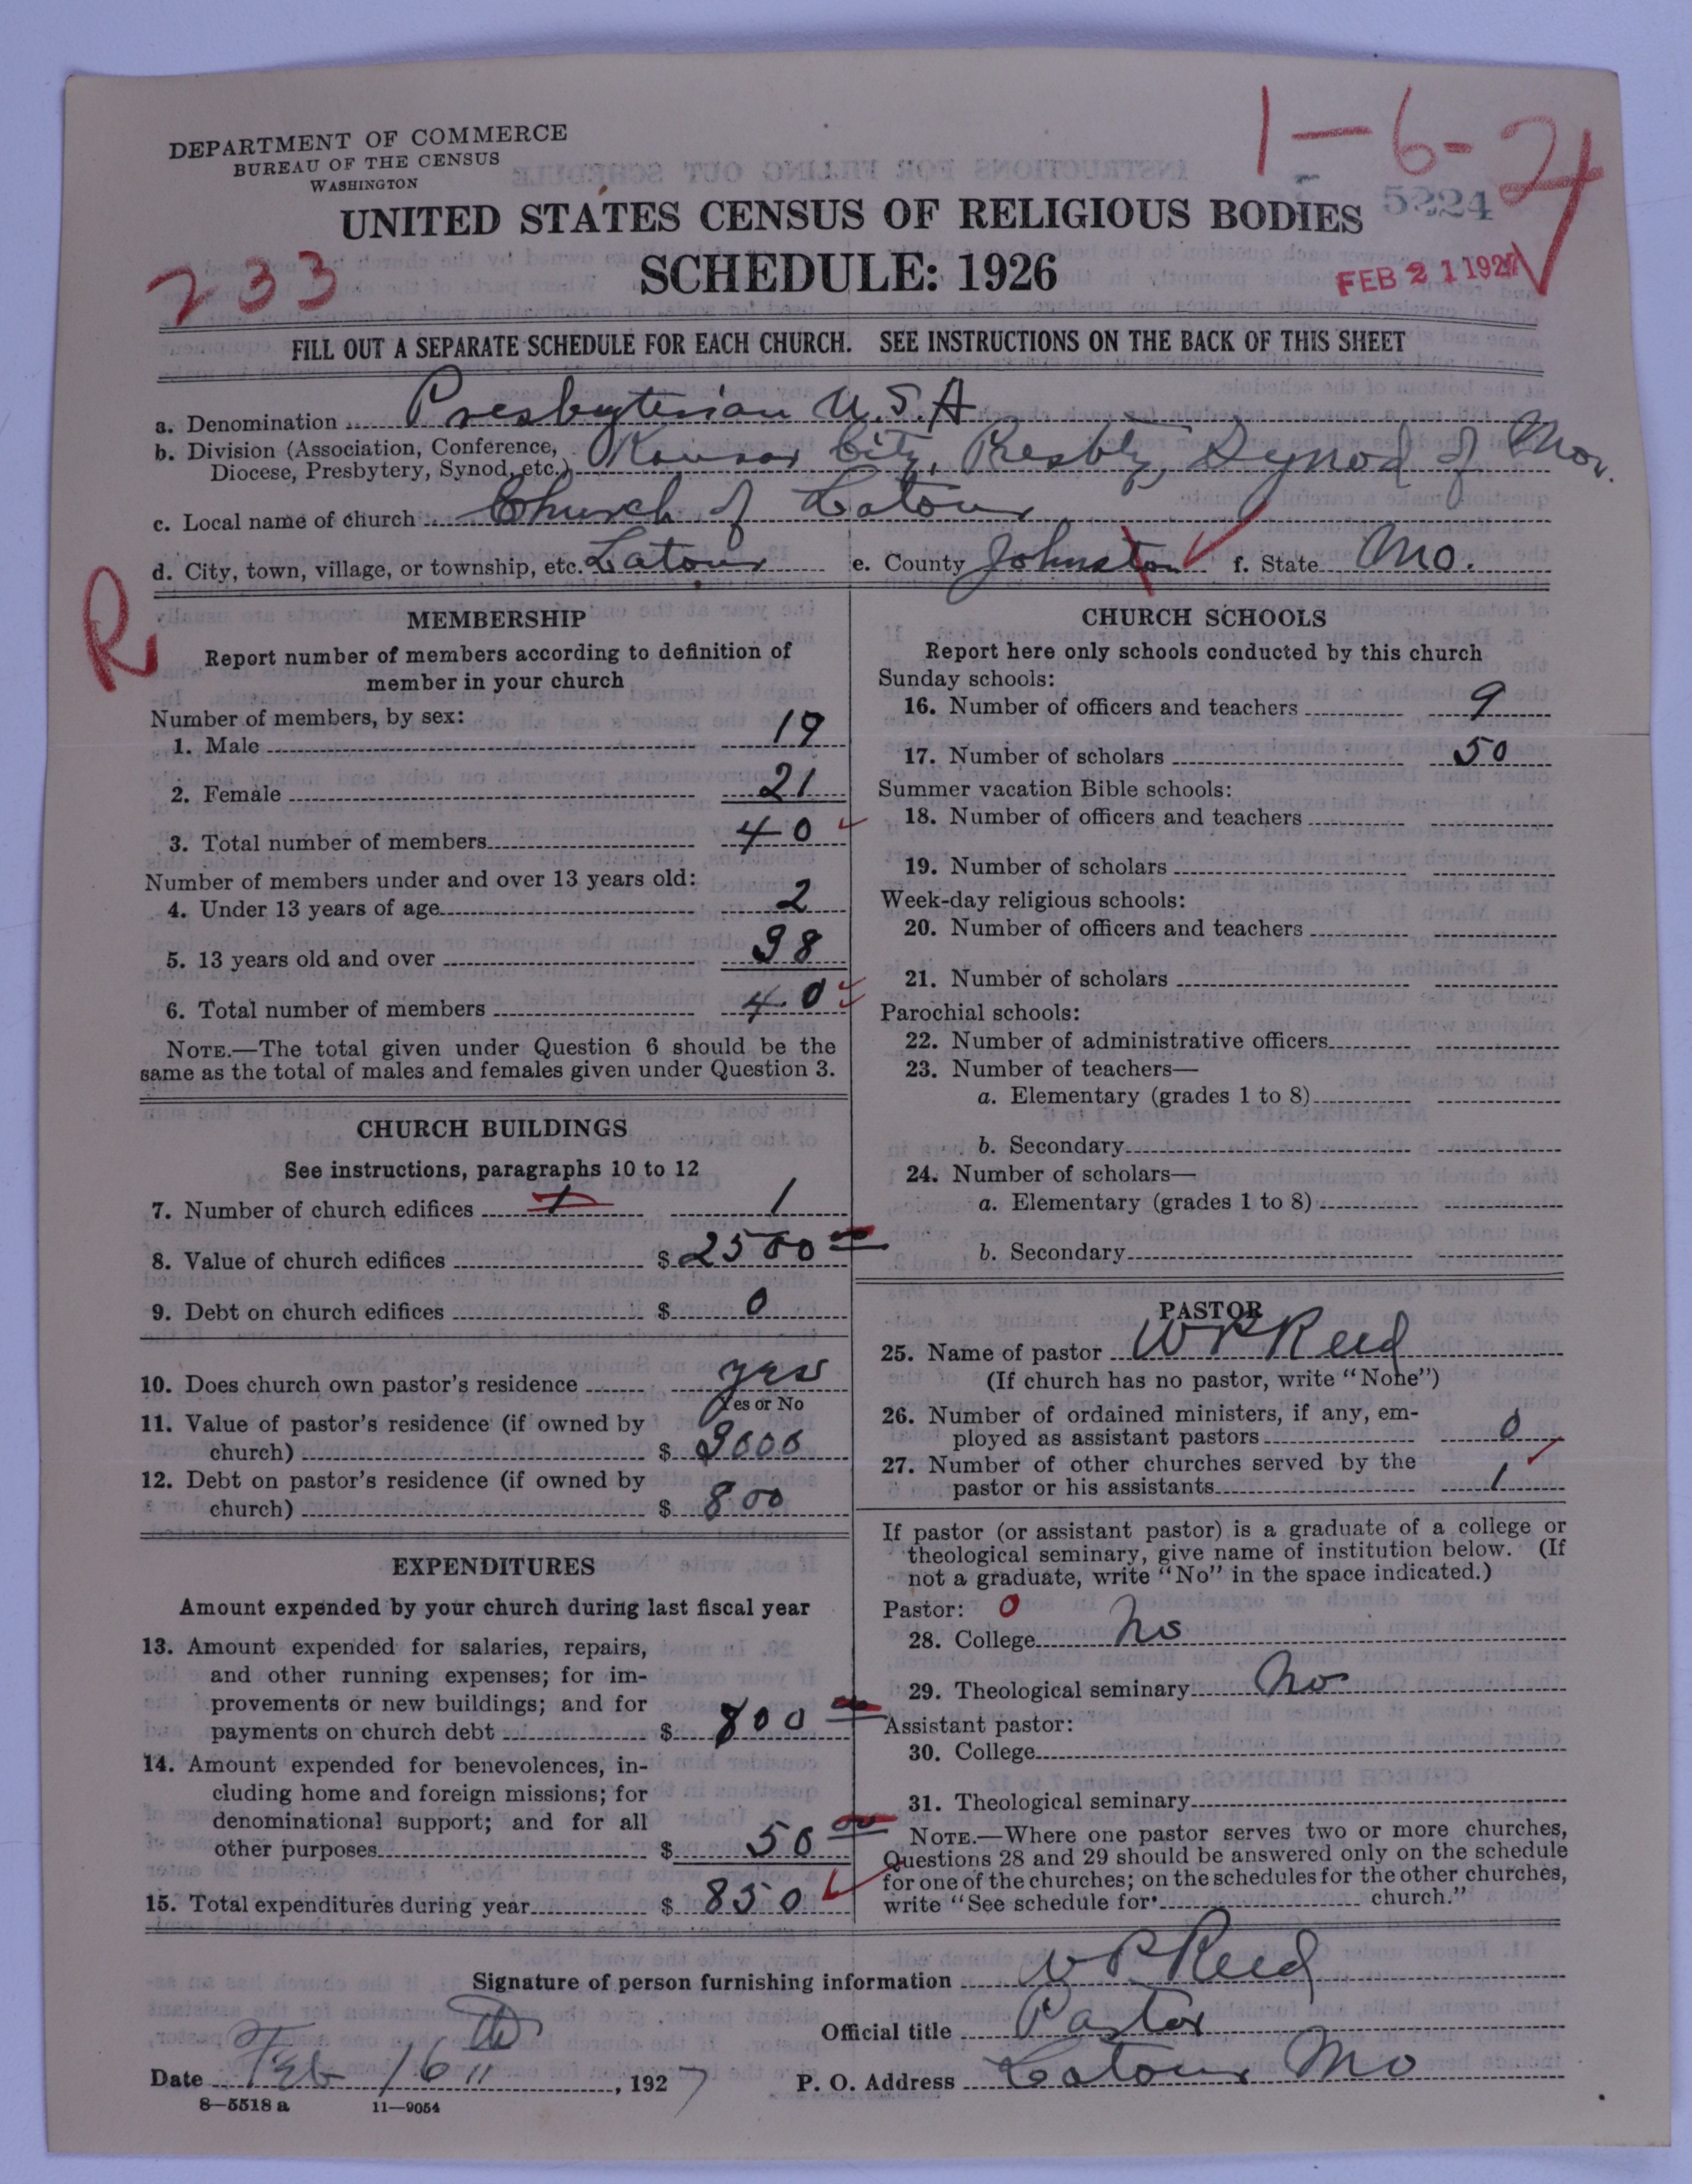 1-6-24
DEPARTMENT OF COMMERCE
BUREAU OF THE CENSUS
WASHINGTON
5224
UNITED STATES CENSUS OF RELIGIOUS BODIES
SCHEDULE: 1926
233
FEB 21 1927
FILL OUT A SEPARATE SCHEDULE FOR EACH CHURCH. SEE INSTRUCTIONS ON THE BACK OF THIS SHEET
a. Denomination Presbyterian U.S.A
b. Division (Association, Conference, Diocese, Presbytery, Synod, etc.) Kansas City, Presbty, Synod of Mo.
c. Local name of church Church of Latour
d. City, town, village, or township, etc. Latour e. County Johnston f. State Mo.
R
MEMBERSHIP
Report number of members according to definition of
member in your church
Number of members, by sex:
1. Male 19
2. Female 21
3. Total number of members 40
Number of members under and over 13 years old:
4. Under 13 years of age 2
5. 13 years old and over 38
6. Total number of members 40
NOTE.—The total given under Question 6 should be the
same as the total of males and females given under Question 3.
CHURCH BUILDINGS
See instructions, paragraphs 10 to 12
7. Number of church edifices 1 1
8. Value of church edifices $ 2500 00
9. Debt on church edifices $ 0
10. Does church own pastor's residence yes
Yes or No
11. Value of pastor's residence (if owned by
church) $ 3000
12. Debt on pastor's residence (if owned by
church) $ 800
EXPENDITURES
Amount expended by your church during last fiscal year
13. Amount expended for salaries, repairs,
and other running expenses; for im-
provements or new buildings; and for
payments on church debt $ 800 00
14. Amount expended for benevolences, in-
cluding home and foreign missions; for
denominational support; and for all
other purposes $ 50 00
15. Total expenditures during year $ 850
CHURCH SCHOOLS
Report here only schools conducted by this church
Sunday schools:
16. Number of officers and teachers 9
17. Number of scholars 50
Summer vacation Bible schools:
18. Number of officers and teachers
19. Number of scholars
Week-day religious schools:
20. Number of officers and teachers
21. Number of scholars
Parochial schools:
22. Number of administrative officers
23. Number of teachers—
a. Elementary (grades 1 to 8)
b. Secondary
24. Number of scholars—
a. Elementary (grades 1 to 8)
b. Secondary
PASTOR
25. Name of pastor W P Reed
(If church has no pastor, write "None")
26. Number of ordained ministers, if any, em-
ployed as assistant pastors 0
27. Number of other churches served by the
pastor or his assistants 1
If pastor (or assistant pastor) is a graduate of a college or
theological seminary, give name of institution below. (If
not a graduate, write "No" in the space indicated.)
Pastor: 0
28. College No
29. Theological seminary No
Assistant pastor:
30. College
31. Theological seminary
NOTE.—Where one pastor serves two or more churches,
Questions 28 and 29 should be answered only on the schedule
for one of the churches; on the schedules for the other churches,
write "See schedule for church."
Signature of person furnishing information W P Reed
Official title Pastor
Date Feb 16th, 1927 P. O. Address Latour Mo
8—5518 a 11—9054